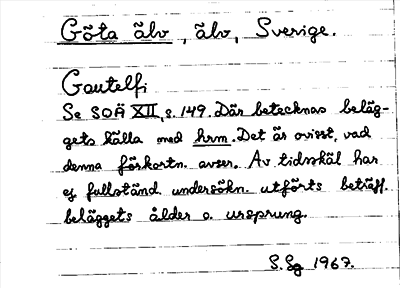 Göta älv, älv, Sverige.
Gautelfi
Se SOÄ XII, s. 149. Där betecknas beläg-
gets källa med hrm. Det är ovisst, vad
denna förkortn. avser. Av tidsskäl har
ej fullständ. undersökn. utförts beträff.
beläggets ålder o. ursprung.
S. Sg 1967.